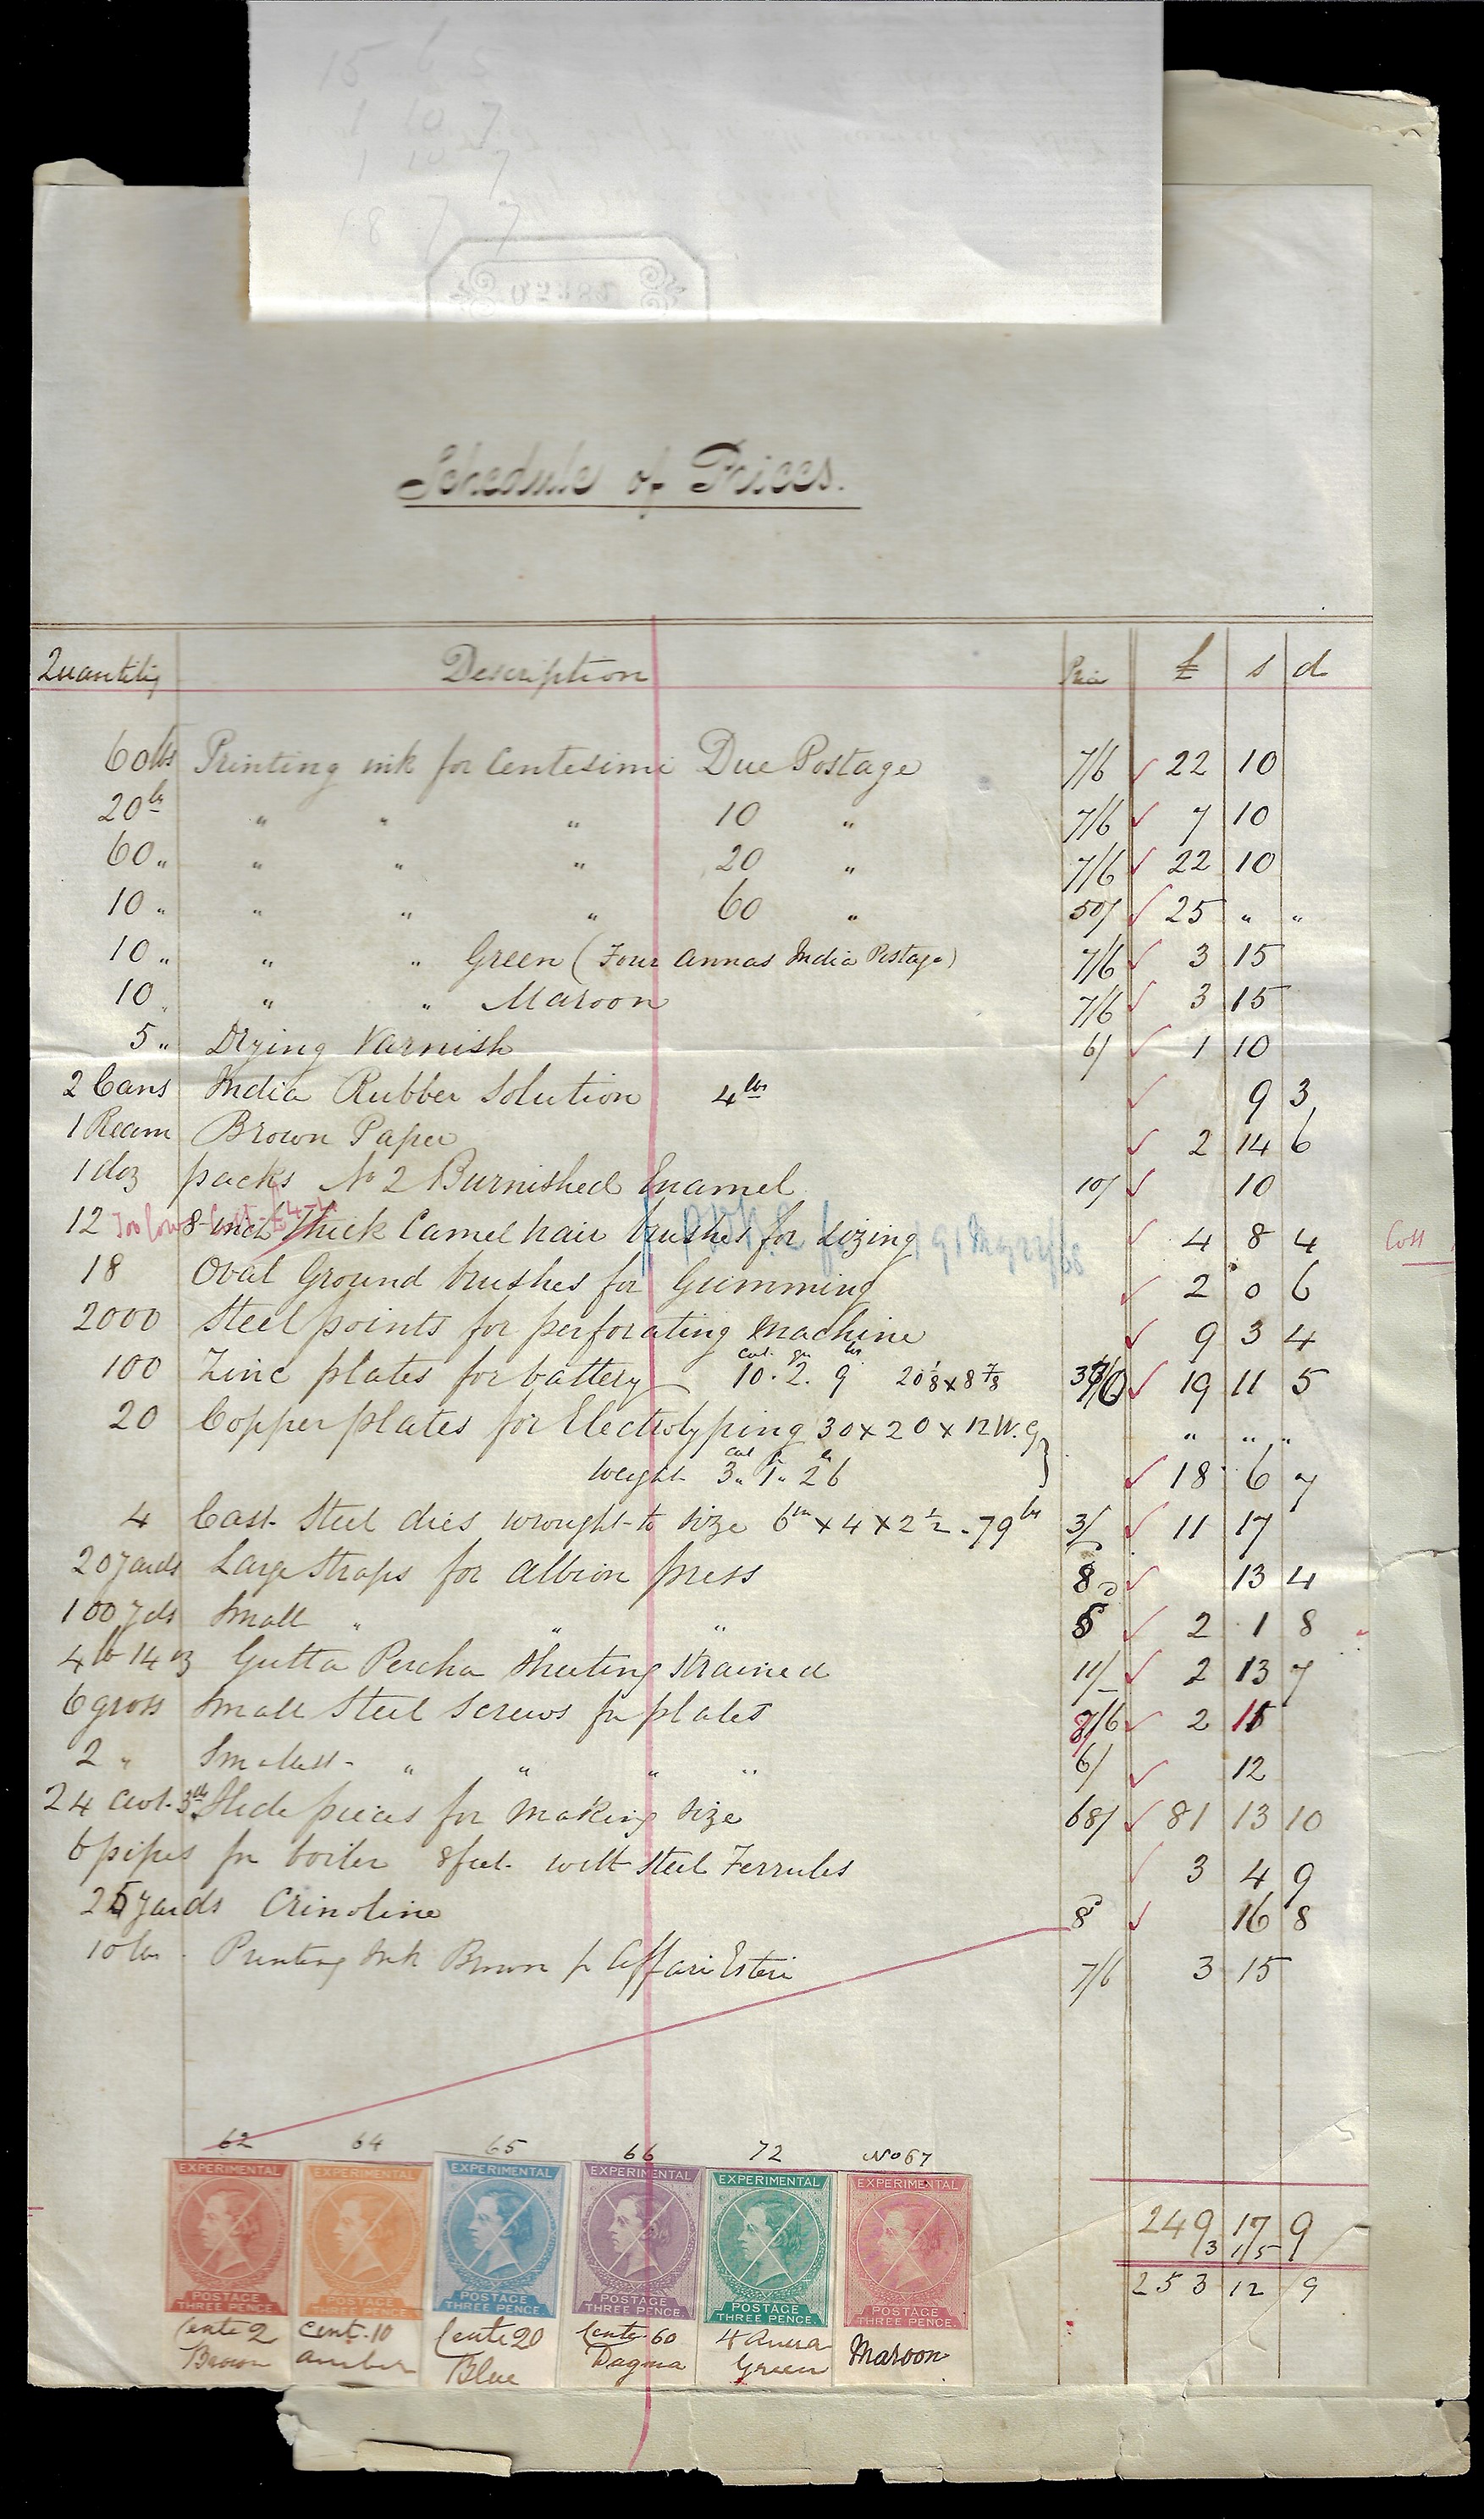 15 6 5
1 10 7
1 10 7
18 7 7
Schedule of Prices.
Quantity Description Price £ s d
60 lbs Printing ink for Centesimi Due Postage 7/6 22 10
20 lbs " " " 10 " 7/6 7 10
60 " " " " 20 " 7/6 22 10
10 " " " " 60 " 50/ 25 " "
10 " " " Green (Four Annas India Postage) 7/6 3 15
10 " " " Maroon 7/6 3 15
5 " Drying Varnish 6/ 1 10
2 Cans India Rubber Solution 4 lbs 9 3
1 Ream Brown Paper 2 14 6
1 doz packs No 2 Burnished Enamel 10/ 10
12 Too low Cost 8-inch thick Camel hair brushes for Sizing 4 8 4 Cost
18 Oval Ground brushes for Gumming 2 0 6
2000 Steel points for perforating machine 9 3 4
100 Zinc plates for battery 10 . 2 . 9 20 1/8 x 8 7/8 19 11 5
20 Copper plates for Electrotyping 30 x 20 x 12 W.G } " " "
Weight 3 " 1 " 26 18 6 7
4 Cast Steel dies wrought to size 6 in x 4 x 2 1/2 - 79 lbs 3/ 11 17
20 yards Large Straps for Albion press 8 13 4
100 yds Small " " " 5 2 1 8
4 lb 14 oz Gutta Percha Sheeting Strained 11/ 2 13 7
6 gross Small Steel Screws for plates 7/6 2 15
2 " Smallest " " " " 6/ 12
24 cwt. 3 lb Hide pieces for making Size 68/ 81 13 10
6 pipes for boiler 8 feet with Steel Ferrules 3 4 9
25 yards Crinoline 8 16 8
10 lbs Printing Ink Brown for Affari Esteri 7/6 3 15
249 17 9
3 15
253 12 9
62 64 65 66 72 No 67
EXPERIMENTAL EXPERIMENTAL EXPERIMENTAL EXPERIMENTAL EXPERIMENTAL EXPERIMENTAL
POSTAGE POSTAGE POSTAGE POSTAGE POSTAGE POSTAGE
THREE PENCE. THREE PENCE. THREE PENCE. THREE PENCE. THREE PENCE. THREE PENCE.
Cente 2 Cent. 10 Cente 20 Cente 60 4 Anna Maroon
Brown amber Blue Dagma Green